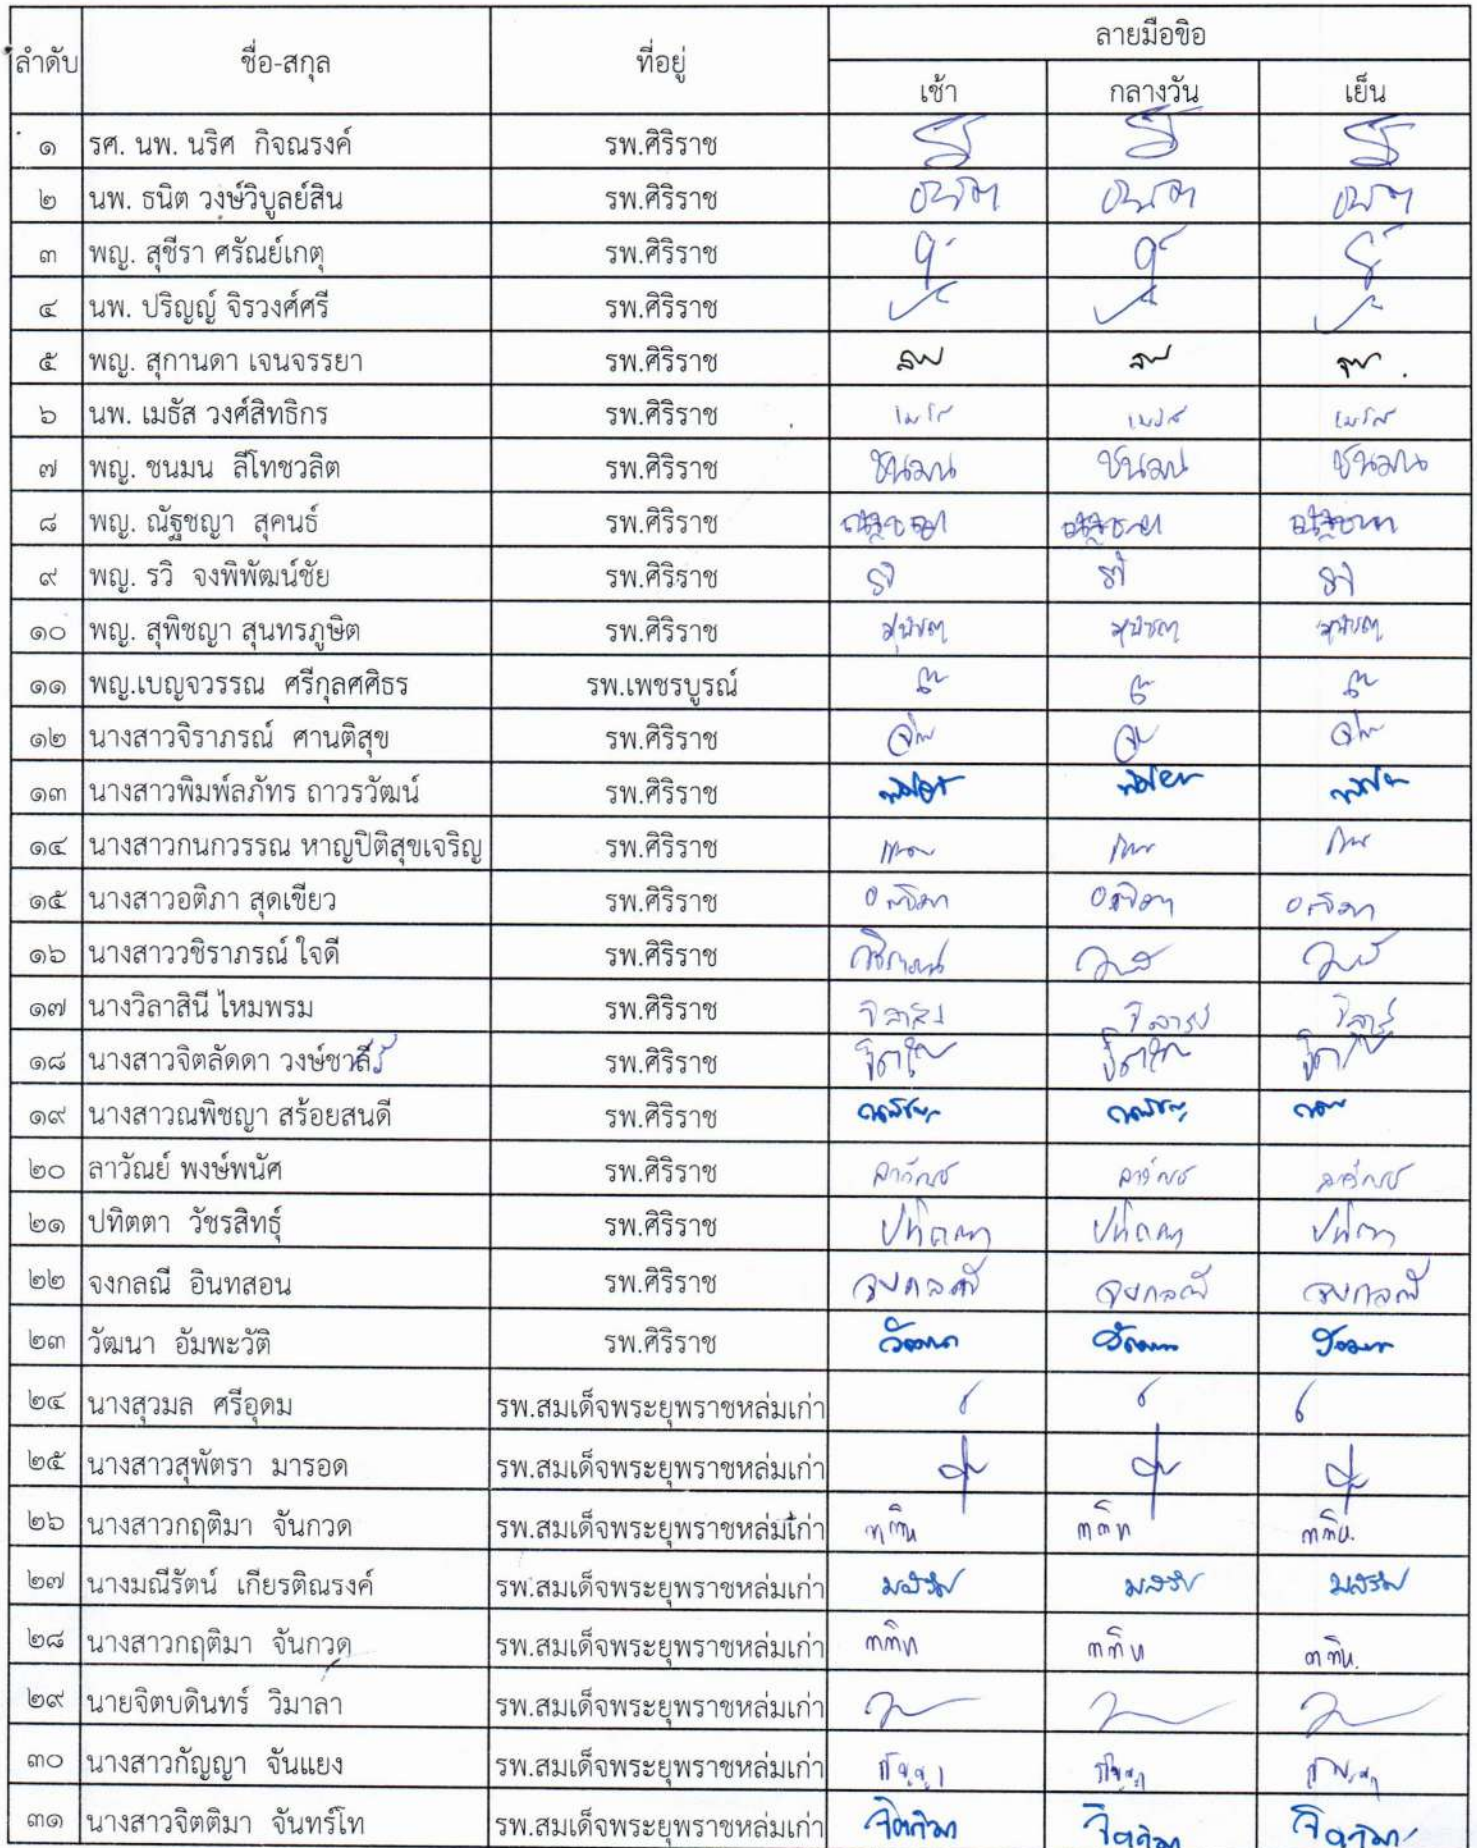 ลำดับ ชื่อ-สกุล ที่อยู่ ลายมือขือ
เช้า กลางวัน เย็น
๑ รศ. นพ. นริศ กิจณรงค์ รพ.ศิริราช
๒ นพ. ธนิต วงษ์วิบูลย์สิน รพ.ศิริราช ธนิต ธนิต ธนิต
๓ พญ. สุชีรา ศรัณย์เกตุ รพ.ศิริราช
๔ นพ. ปริญญ์ จิรวงศ์ศรี รพ.ศิริราช
๕ พญ. สุกานดา เจนจรรยา รพ.ศิริราช
๖ นพ. เมธัส วงศ์สิทธิกร รพ.ศิริราช เมธัส เมธัส เมธัส
๗ พญ. ชนมน ลีโทชวลิต รพ.ศิริราช ชนมน ชนมน ชนมน
๘ พญ. ณัฐชญา สุคนธ์ รพ.ศิริราช ณัฐชญา ณัฐชญา ณัฐชญา
๙ พญ. รวิ จงพิพัฒน์ชัย รพ.ศิริราช รวิ รวิ รวิ
๑๐ พญ. สุพิชญา สุนทรภูษิต รพ.ศิริราช สุพิชญา สุพิชญา สุพิชญา
๑๑ พญ.เบญจวรรณ ศรีกุลศศิธร รพ.เพชรบูรณ์
๑๒ นางสาวจิราภรณ์ ศานติสุข รพ.ศิริราช
๑๓ นางสาวพิมพ์ลภัทร ถาวรวัฒน์ รพ.ศิริราช
๑๔ นางสาวกนกวรรณ หาญปิติสุขเจริญ รพ.ศิริราช
๑๕ นางสาวอติภา สุดเขียว รพ.ศิริราช อติภา อติภา อติภา
๑๖ นางสาววชิราภรณ์ ใจดี รพ.ศิริราช วชิราภรณ์
๑๗ นางวิลาสินี ไหมพรม รพ.ศิริราช
๑๘ นางสาวจิตลัดดา วงษ์ชาลี รพ.ศิริราช
๑๙ นางสาวณพิชญา สร้อยสนดี รพ.ศิริราช
๒๐ ลาวัณย์ พงษ์พนัศ รพ.ศิริราช ลาวัณย์ ลาวัณย์ ลาวัณย์
๒๑ ปทิตตา วัชรสิทธุ์ รพ.ศิริราช ปทิตตา ปทิตตา ปทิตตา
๒๒ จงกลณี อินทสอน รพ.ศิริราช จงกลณี จงกลณี จงกลณี
๒๓ วัฒนา อัมพะวัติ รพ.ศิริราช วัฒนา วัฒนา วัฒนา
๒๔ นางสุวมล ศรีอุดม รพ.สมเด็จพระยุพราชหล่มเก่า
๒๕ นางสาวสุพัตรา มารอด รพ.สมเด็จพระยุพราชหล่มเก่า
๒๖ นางสาวกฤติมา จันกวด รพ.สมเด็จพระยุพราชหล่มเก่า
๒๗ นางมณีรัตน์ เกียรติณรงค์ รพ.สมเด็จพระยุพราชหล่มเก่า
๒๘ นางสาวกฤติมา จันกวด รพ.สมเด็จพระยุพราชหล่มเก่า
๒๙ นายจิตบดินทร์ วิมาลา รพ.สมเด็จพระยุพราชหล่มเก่า
๓๐ นางสาวกัญญา จันแยง รพ.สมเด็จพระยุพราชหล่มเก่า
๓๑ นางสาวจิตติมา จันทร์โท รพ.สมเด็จพระยุพราชหล่มเก่า จิตติมา จิตติมา จิตติมา